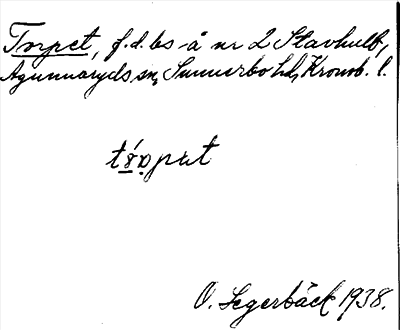 Torpet, f.d. bs å nr 2 Stavhult,
Agunnaryds sn, Sunnerbo hd, Kronob. l.
O. Segerbäck 1938.